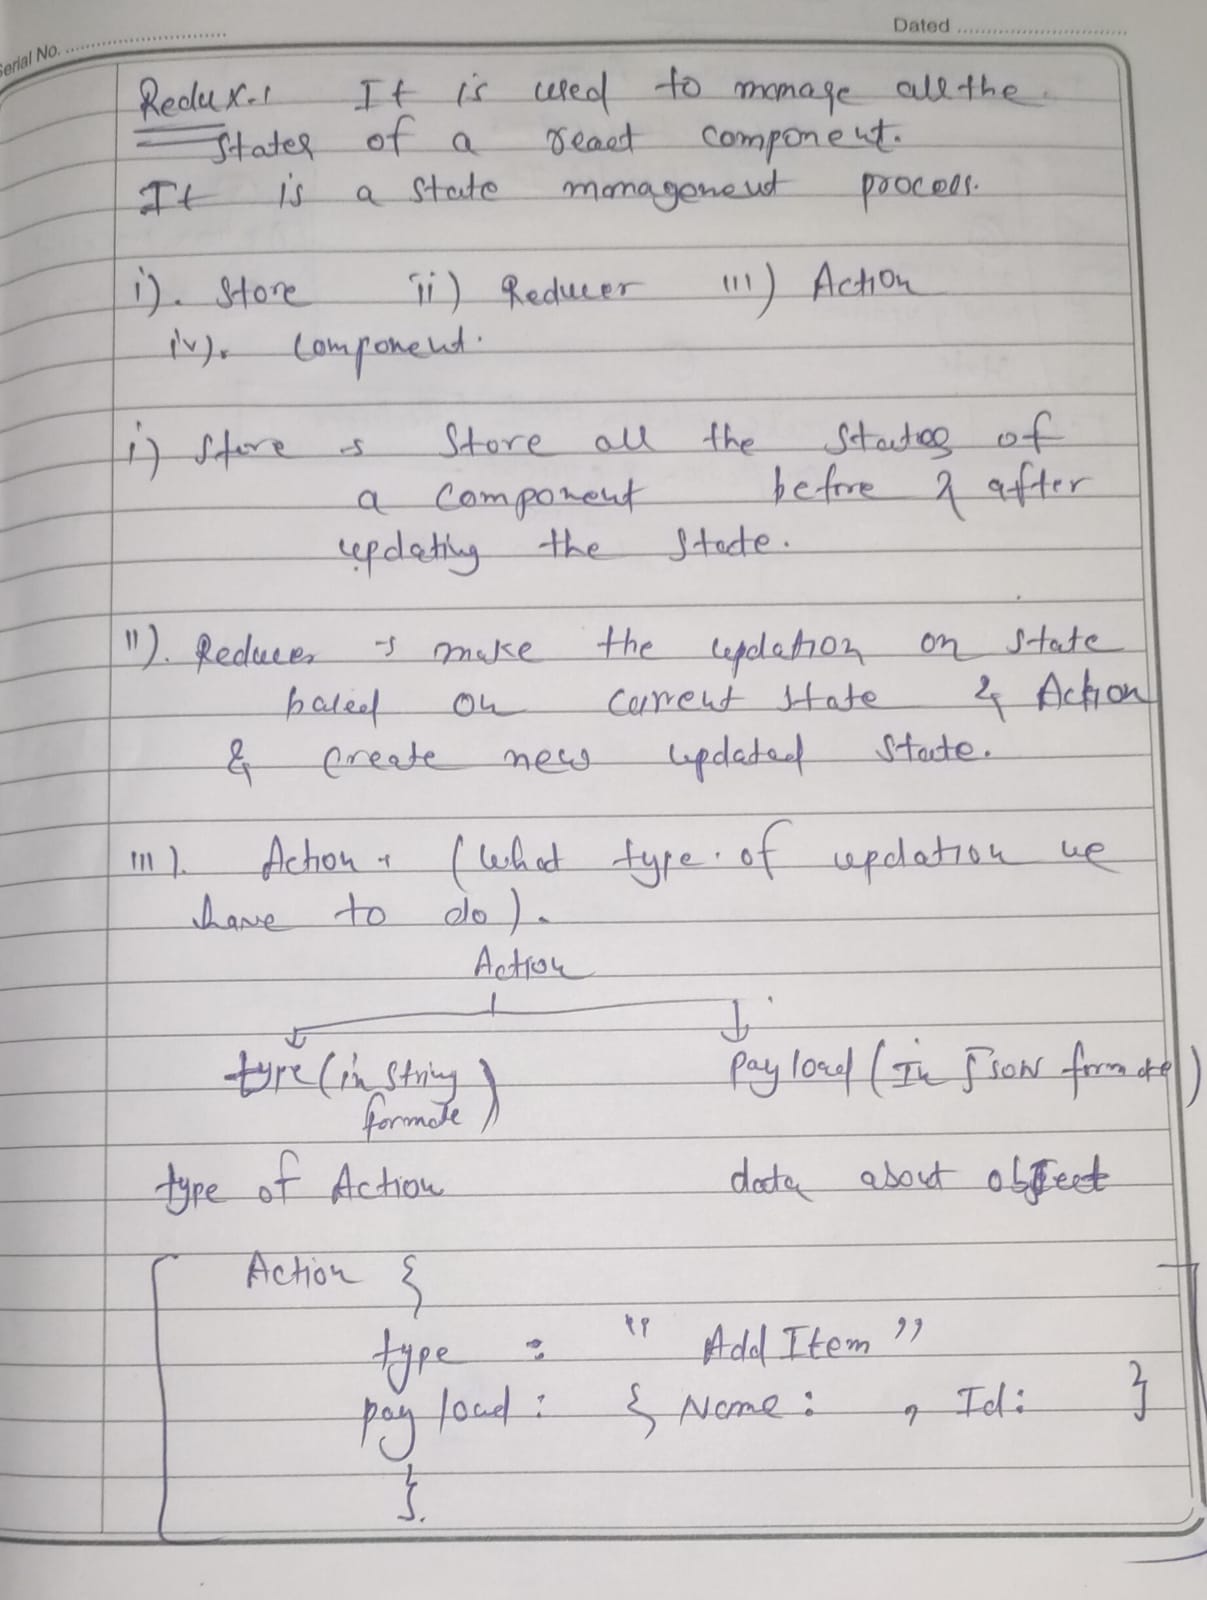 Serial No.
Dated
Redux-: It is used to manage all the
states of a react component.
It is a state management process.
i). Store ii) Reducer iii) Action
iv). Component.
i) Store → Store all the states of
a component before & after
updating the state.
ii). Reducer → make the updation on state
based on current state & Action
& create new updated state.
iii). Action → (what type of updation we
have to do).
Action
type (in string payload (In Json formate)
formate)
type of Action data about object
Action {
type : "Add Item"
payload : { Name : , Id : }
}.